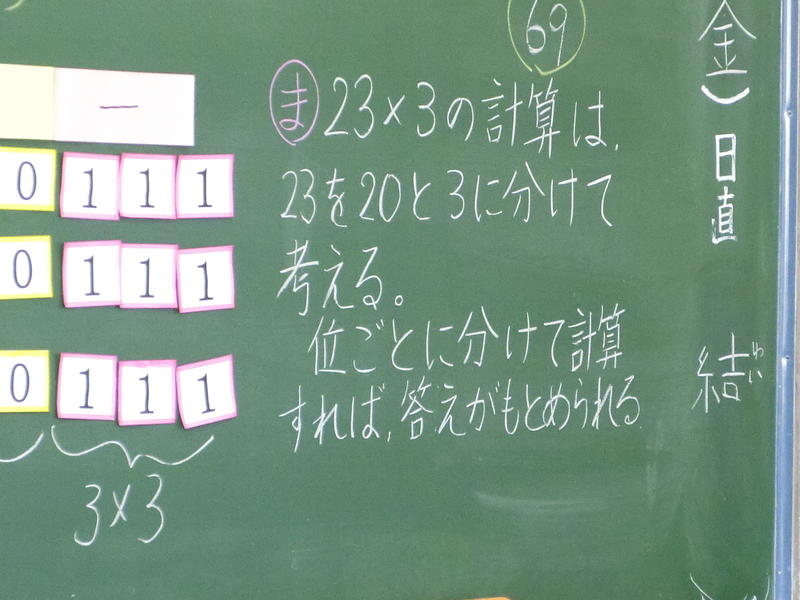 69
一
0 1 1 1
0 1 1 1
0 1 1 1
3×3
ま 23×3の計算は,
23を20と3に分けて
考える。
位ごとに分けて計算
すれば,答えがもとめられる
金)日直
結
ゆい